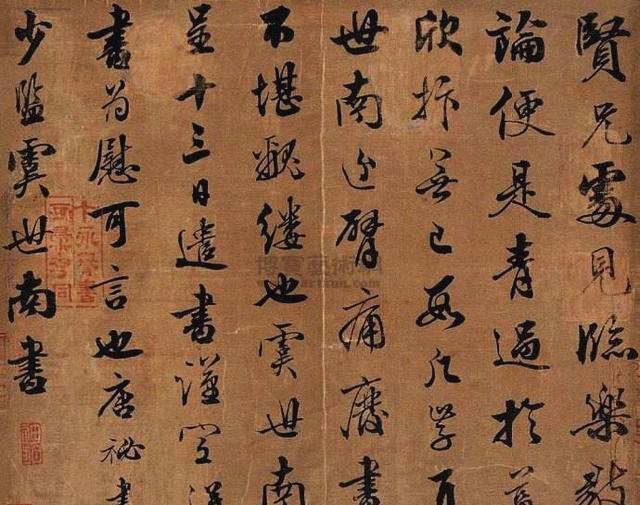 賢兄處見臨樂毅
論便是青過於
欣抃無已學
世南近臂痛廢書
不堪覼縷也虞世南
呈十三日遣書謹空
書為慰可言也唐祕書
少監虞世南書